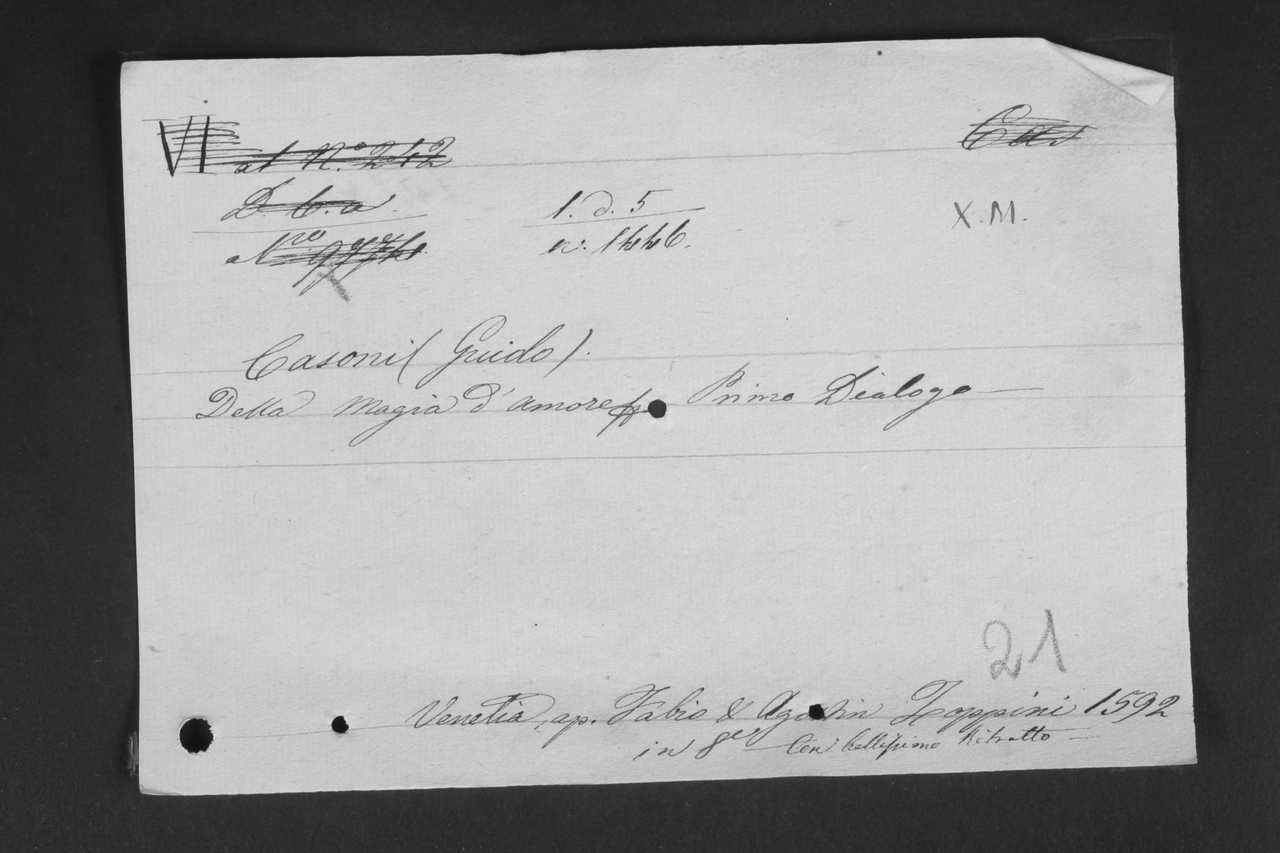 VI
al N.º 242
Cas
D. b. a.
1. d. 5
X. M.
al
nº. 1446.
Casoni (Guido).
Della Magia d'amore Primo Dialogo
21
Venetia, ap. Fabio & Agostin Zoppini 1592
in 8ᵛᵒ Con bellissimo Ritratto